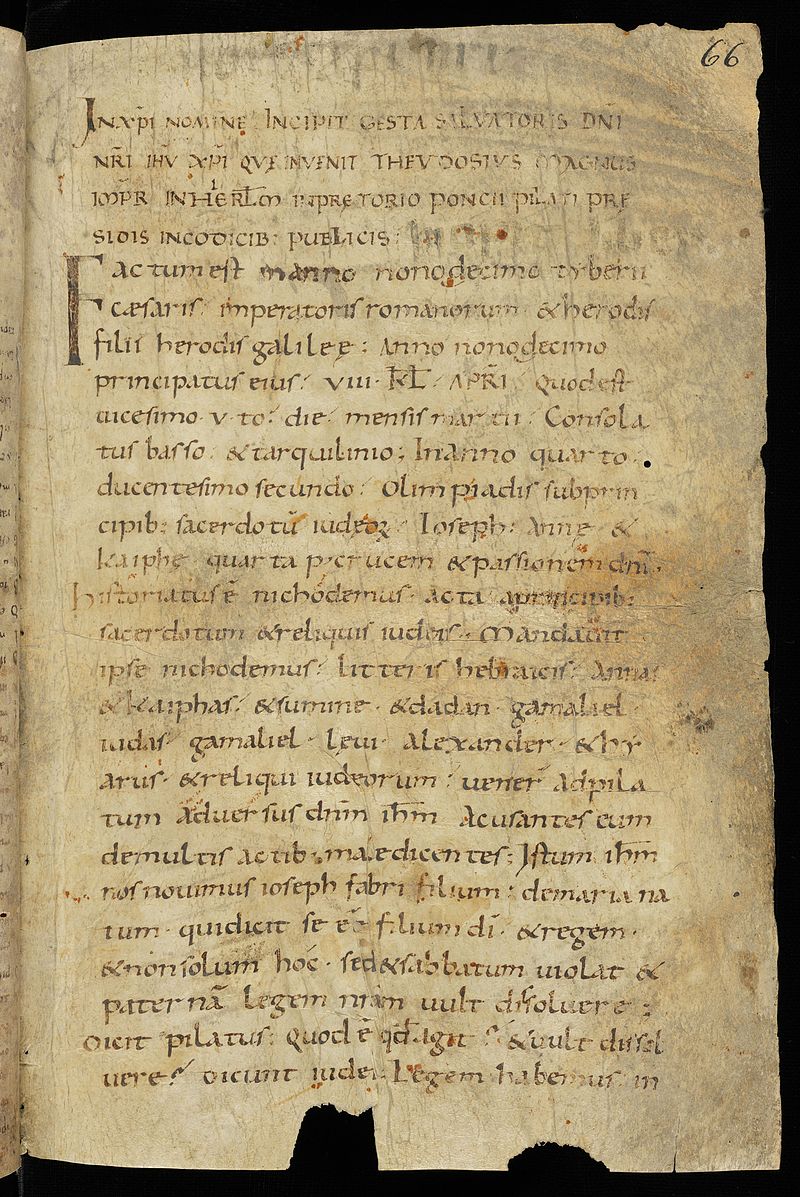 66
IN XP̄I NOMINE INCIPIT GESTA SALVATORIS DN̄I
NR̄I IHV XP̄I QVE INVENIT THEVDOSIVS MAGNVS
IMPR IN HIERLM̄ IN PRETORIO PONCII PILATI PRE
SIDIS IN CODICIB: PUBLICIS:
Factum est in anno nonodecimo tyberii
cæsaris. imperatoris romanorum &herodis
filii herodis galileę: Anno nonodecimo
principatus eius. VIII. KL̄. APRI. Quod est
uicesimo. v. to. die. mensis martii. Consola
tus basso. &tarquilinio; In anno quarto.
ducentesimo secundo. Olimpiadis subprin
cipib: sacerdotū iudeoꝝ. Ioseph. Anne &
Kaiphe. quarta p. crucem &passionem dn̄i.
historiatus ē nichodemus. acta aprincipib:
sacerdotum &reliquis iudeis. Mandauit
ipse nichodemus. litteris hebraicis. Annas
&kaiphas. &summe. &dadan. gamaliel.
iudas. gamaliel. Leui. Alexander. &hy
arus. &reliqui iudeorum: uener̄ adpila
tum aduersus dnm̄ ihm̄ Acusantes eum
demultis actib: maledicentes: Istum ihm̄
nos nouimus ioseph fabri filium: demaria na
tum. quidicit se eē filium dī. &regem.
&nonsolum hoc. sed&sabbatum uiolat &
paternā legem nram̄ uult dissoluere:
Dicit pilatus: Quod ē qd̄ agit? &uult dissol
uere? Dicunt iudei. Legem habemus. in